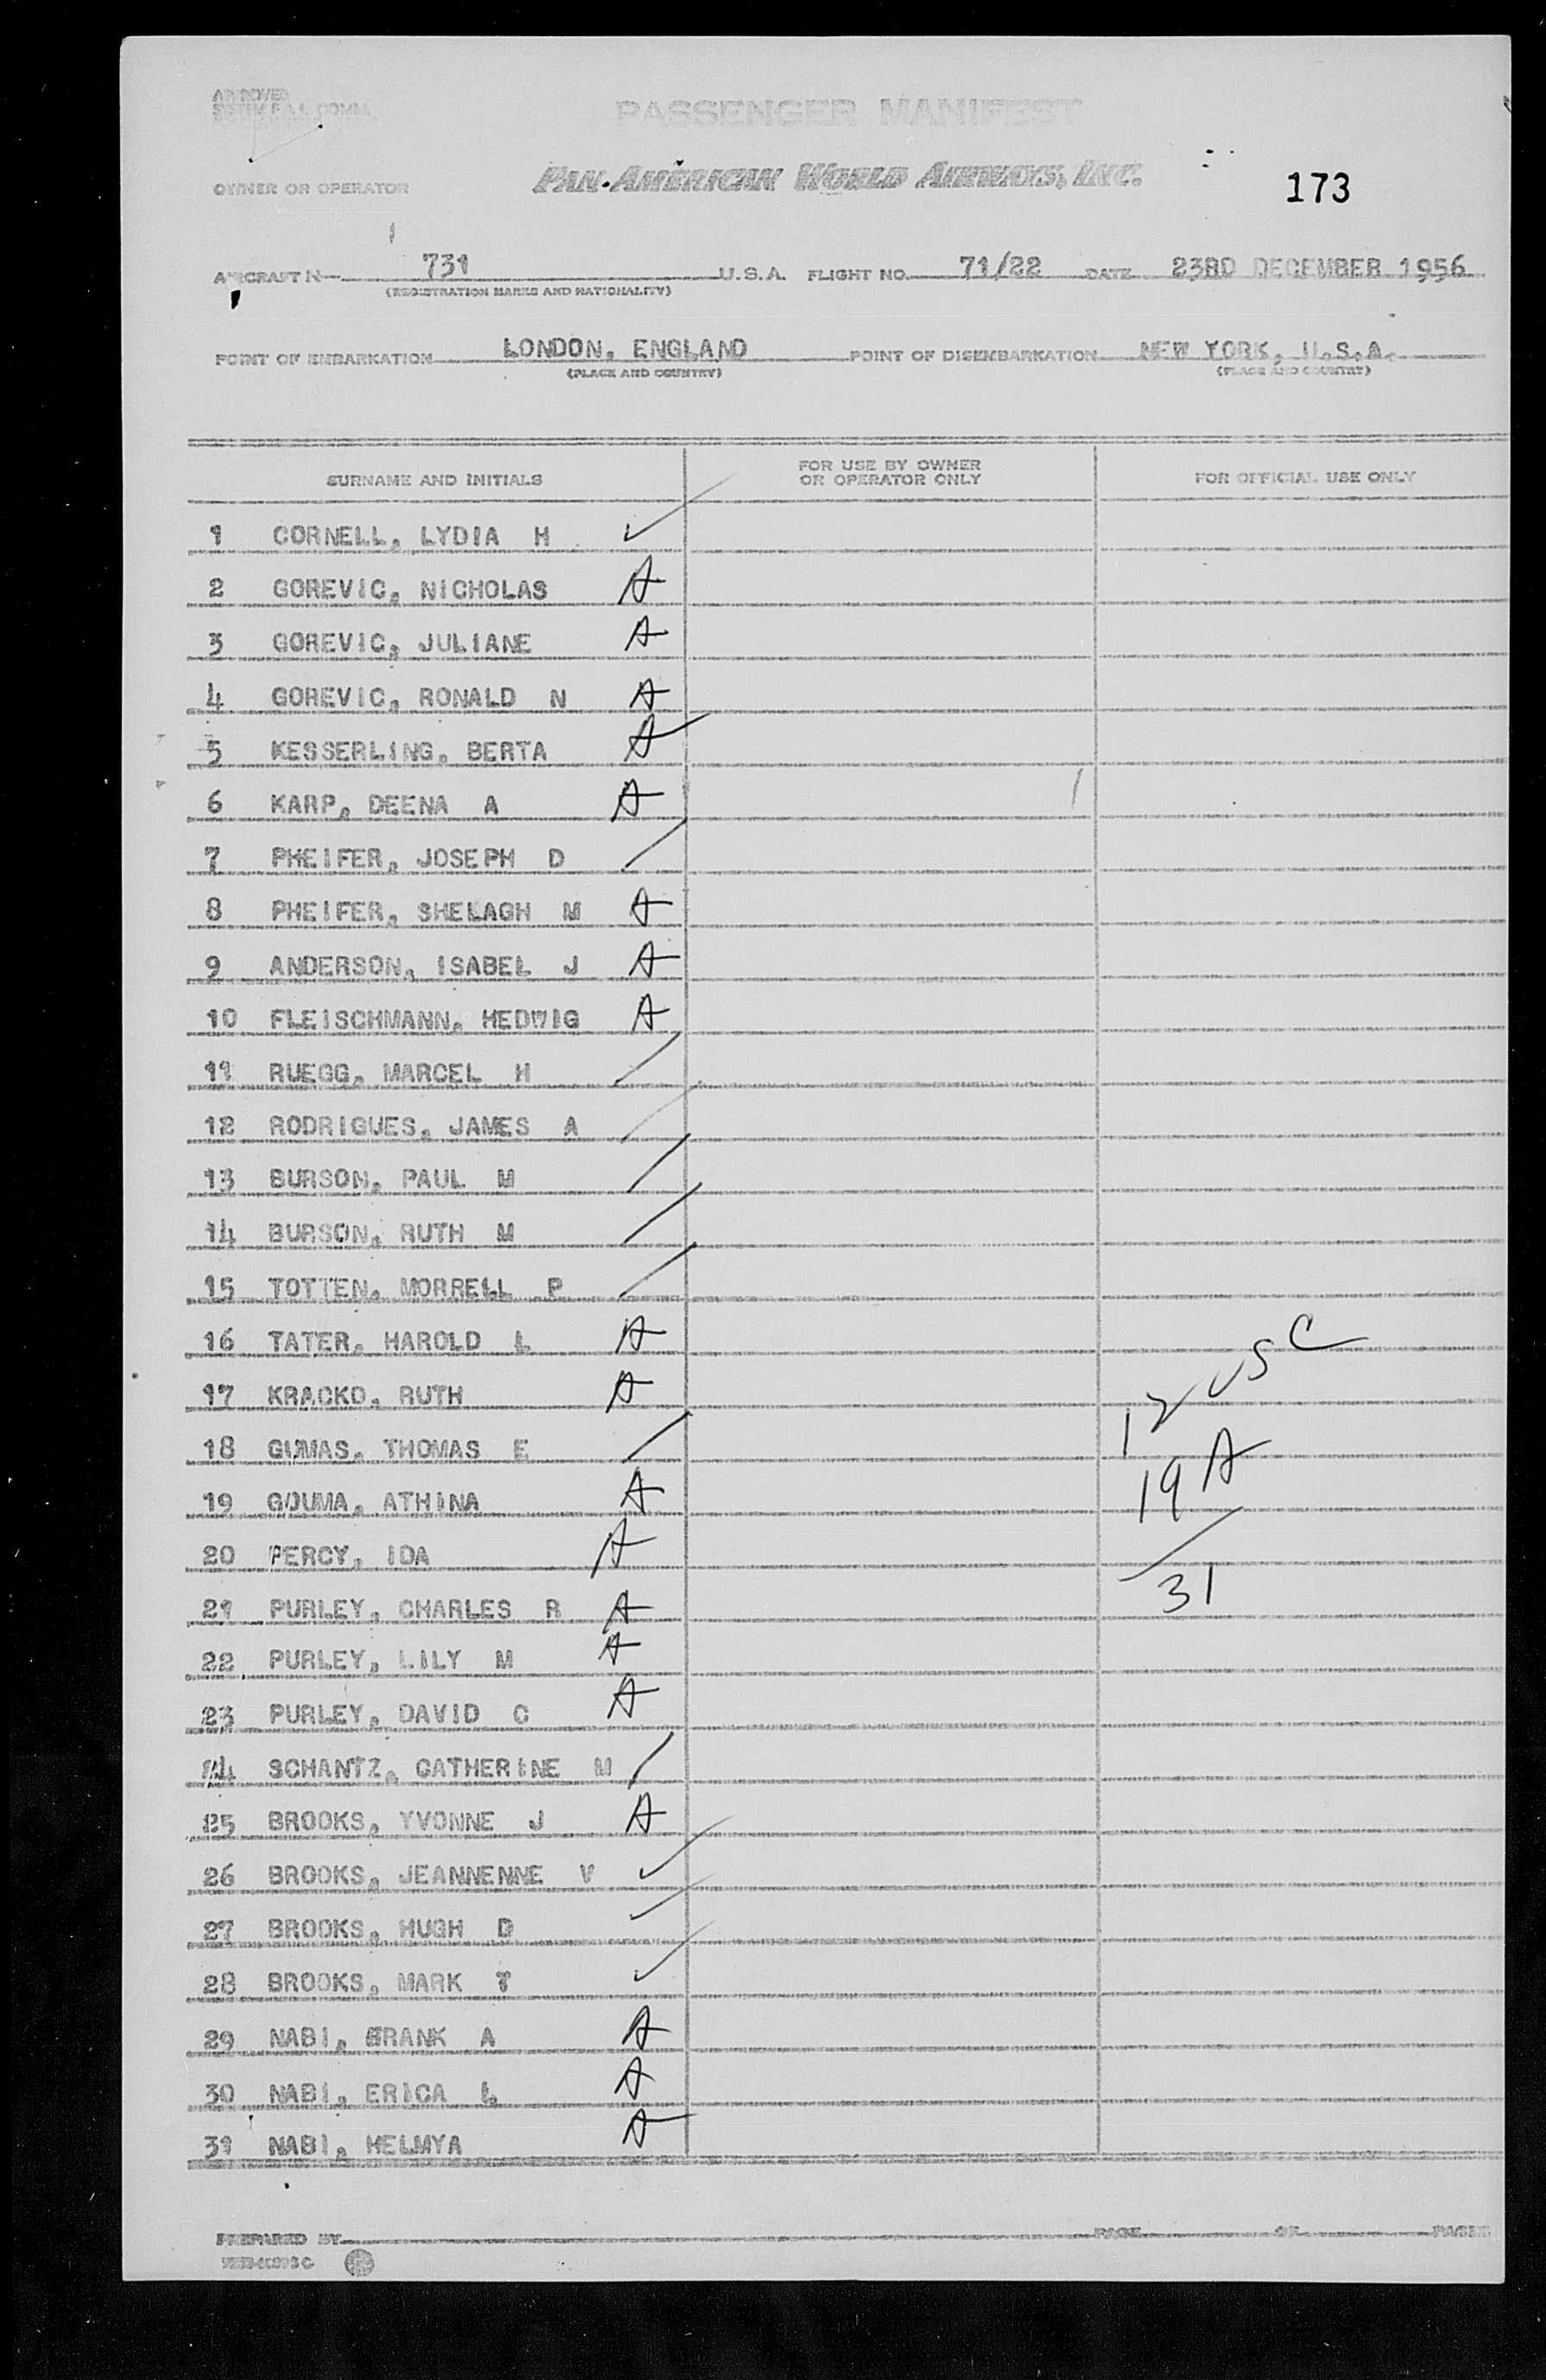 APPROVED
SYSTEM F.A.L. COMM.
PASSENGER MANIFEST
OWNER OR OPERATOR PAN AMERICAN WORLD AIRWAYS, INC.
173
AIRCRAFT N 731 U.S.A. FLIGHT NO. 71/22 DATE 23RD DECEMBER 1956
(REGISTRATION MARKS AND NATIONALITY)
POINT OF EMBARKATION LONDON, ENGLAND POINT OF DISEMBARKATION NEW YORK, U.S.A.
(PLACE AND COUNTRY) (PLACE AND COUNTRY)
SURNAME AND INITIALS FOR USE BY OWNER OR OPERATOR ONLY FOR OFFICIAL USE ONLY
1 CORNELL, LYDIA H ✓
2 GOREVIC, NICHOLAS A
3 GOREVIC, JULIANE A
4 GOREVIC, RONALD N A
5 KESSERLING, BERTA A
6 KARP, DEENA A A
7 PHEIFER, JOSEPH D /
8 PHEIFER, SHELAGH M A
9 ANDERSON, ISABEL J A
10 FLEISCHMANN, HEDWIG A
11 RUEGG, MARCEL H /
12 RODRIGUES, JAMES A /
13 BURSON, PAUL M /
14 BURSON, RUTH M /
15 TOTTEN, MORRELL P /
16 TATER, HAROLD L A
17 KRACKO, RUTH A
18 GUMAS, THOMAS E /
19 GOUMA, ATHINA A
20 PERCY, IDA A
21 PURLEY, CHARLES R A
22 PURLEY, LILY M A
23 PURLEY, DAVID C A
24 SCHANTZ, CATHERINE M /
25 BROOKS, YVONNE J A
26 BROOKS, JEANNENNE V ✓
27 BROOKS, HUGH D ✓
28 BROOKS, MARK T ✓
29 NABI, FRANK A A
30 NABI, ERICA L A
31 NABI, HELMYA A
12 USC
19 A
31
PREPARED BY PAGE OF PAGES